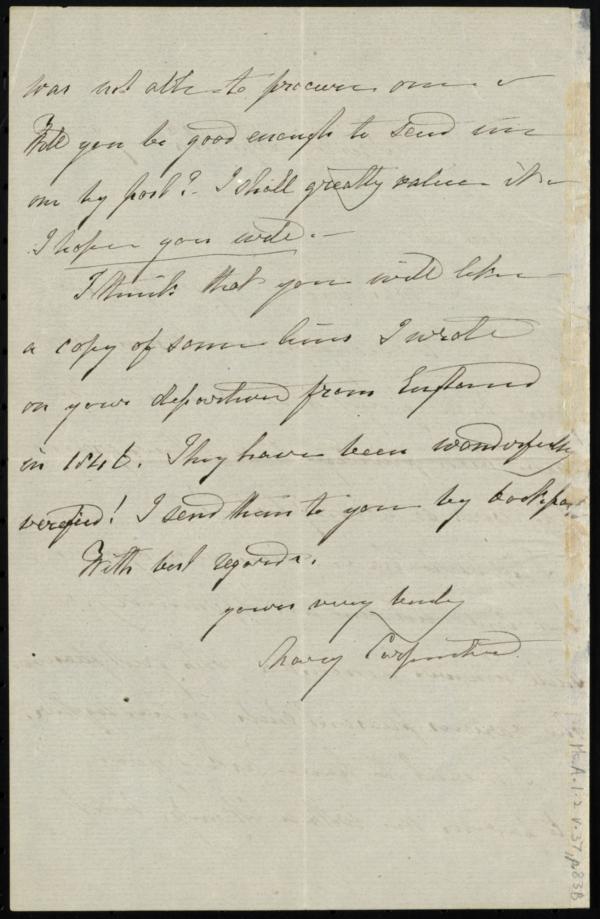 was not able to procure one &
Will you be good enough to send me
one by post? I shall greatly value it.
I hope you will.
I think that you will like
a copy of some lines I wrote
on your departure from England
in 1846. They have been wonderfully
verified! I send them to you by book post
With best regards,
yours very truly
Mary Carpenter
Ms.A.1.2.v.37,p.83B